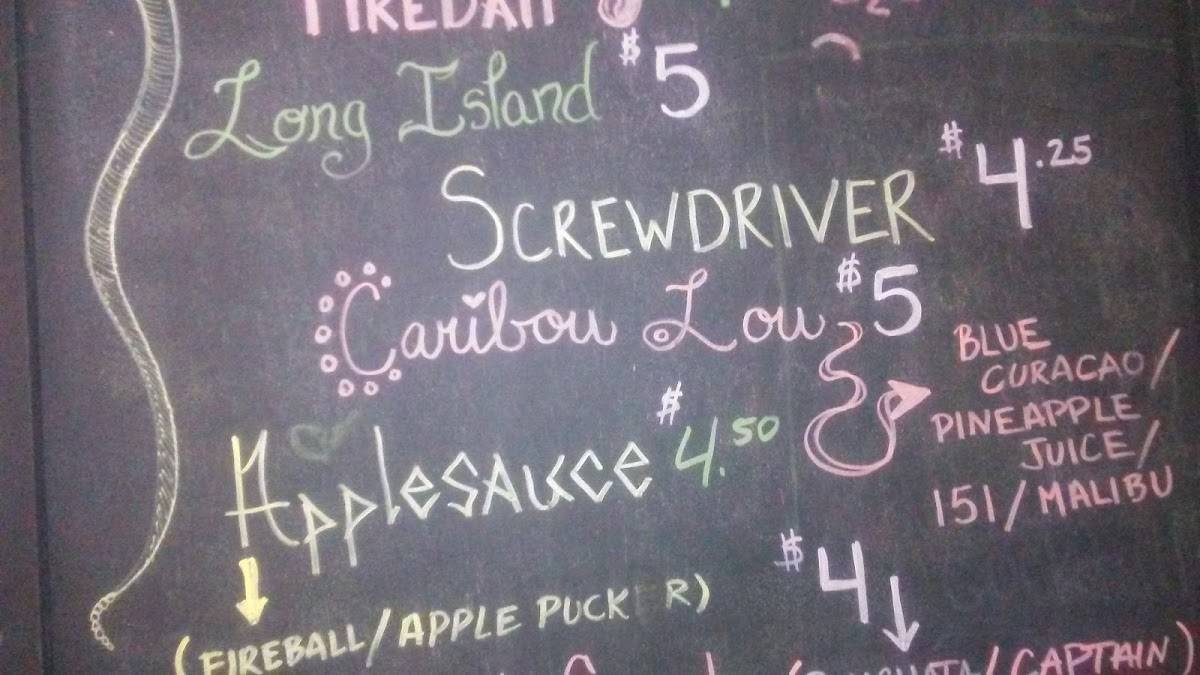 Long Island $5
SCREWDRIVER $4.25
Caribou Lou $5
BLUE
CURACAO/
PINEAPPLE
JUICE/
151/MALIBU
Applesauce $4.50
(FIREBALL/APPLE PUCKER)
$4
/CAPTAIN)